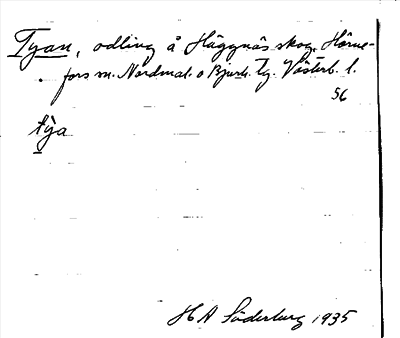 Tyan, odling å Häggnäs skog. Hörne-
fors sn. Nordmal. o Bjurh. tg. Västerb. l.
56
tya
H A Söderberg 1935